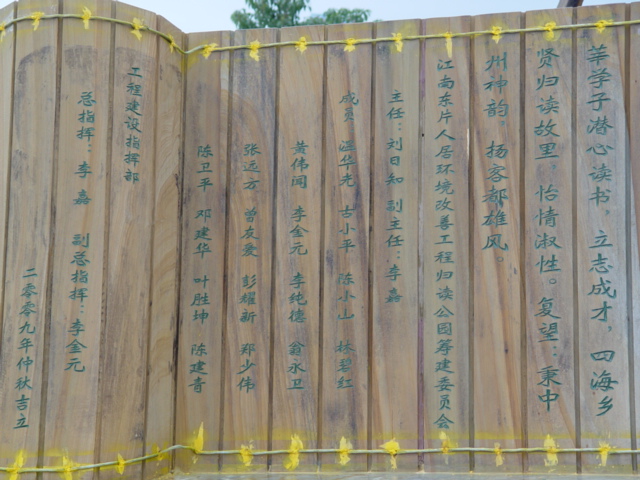 莘学子潜心读书，立志成才，四海乡
贤归读故里，怡情淑性。复望：秉中
州神韵。扬客都雄风。
江南东片人居环境改善工程归读公园筹建委员会
主任：刘日知 副主任：李嘉
成员 汪华光 古小平 陈小山 林碧红
黄伟闻 李金元 李纯德 翁永卫
张远方 曾友爱 彭耀新 郑少伟
陈卫平 邓建华 叶胜坤 陈建青
工程建设指挥部
总指挥：李嘉 副总指挥：李金元
二零零九年仲秋吉立